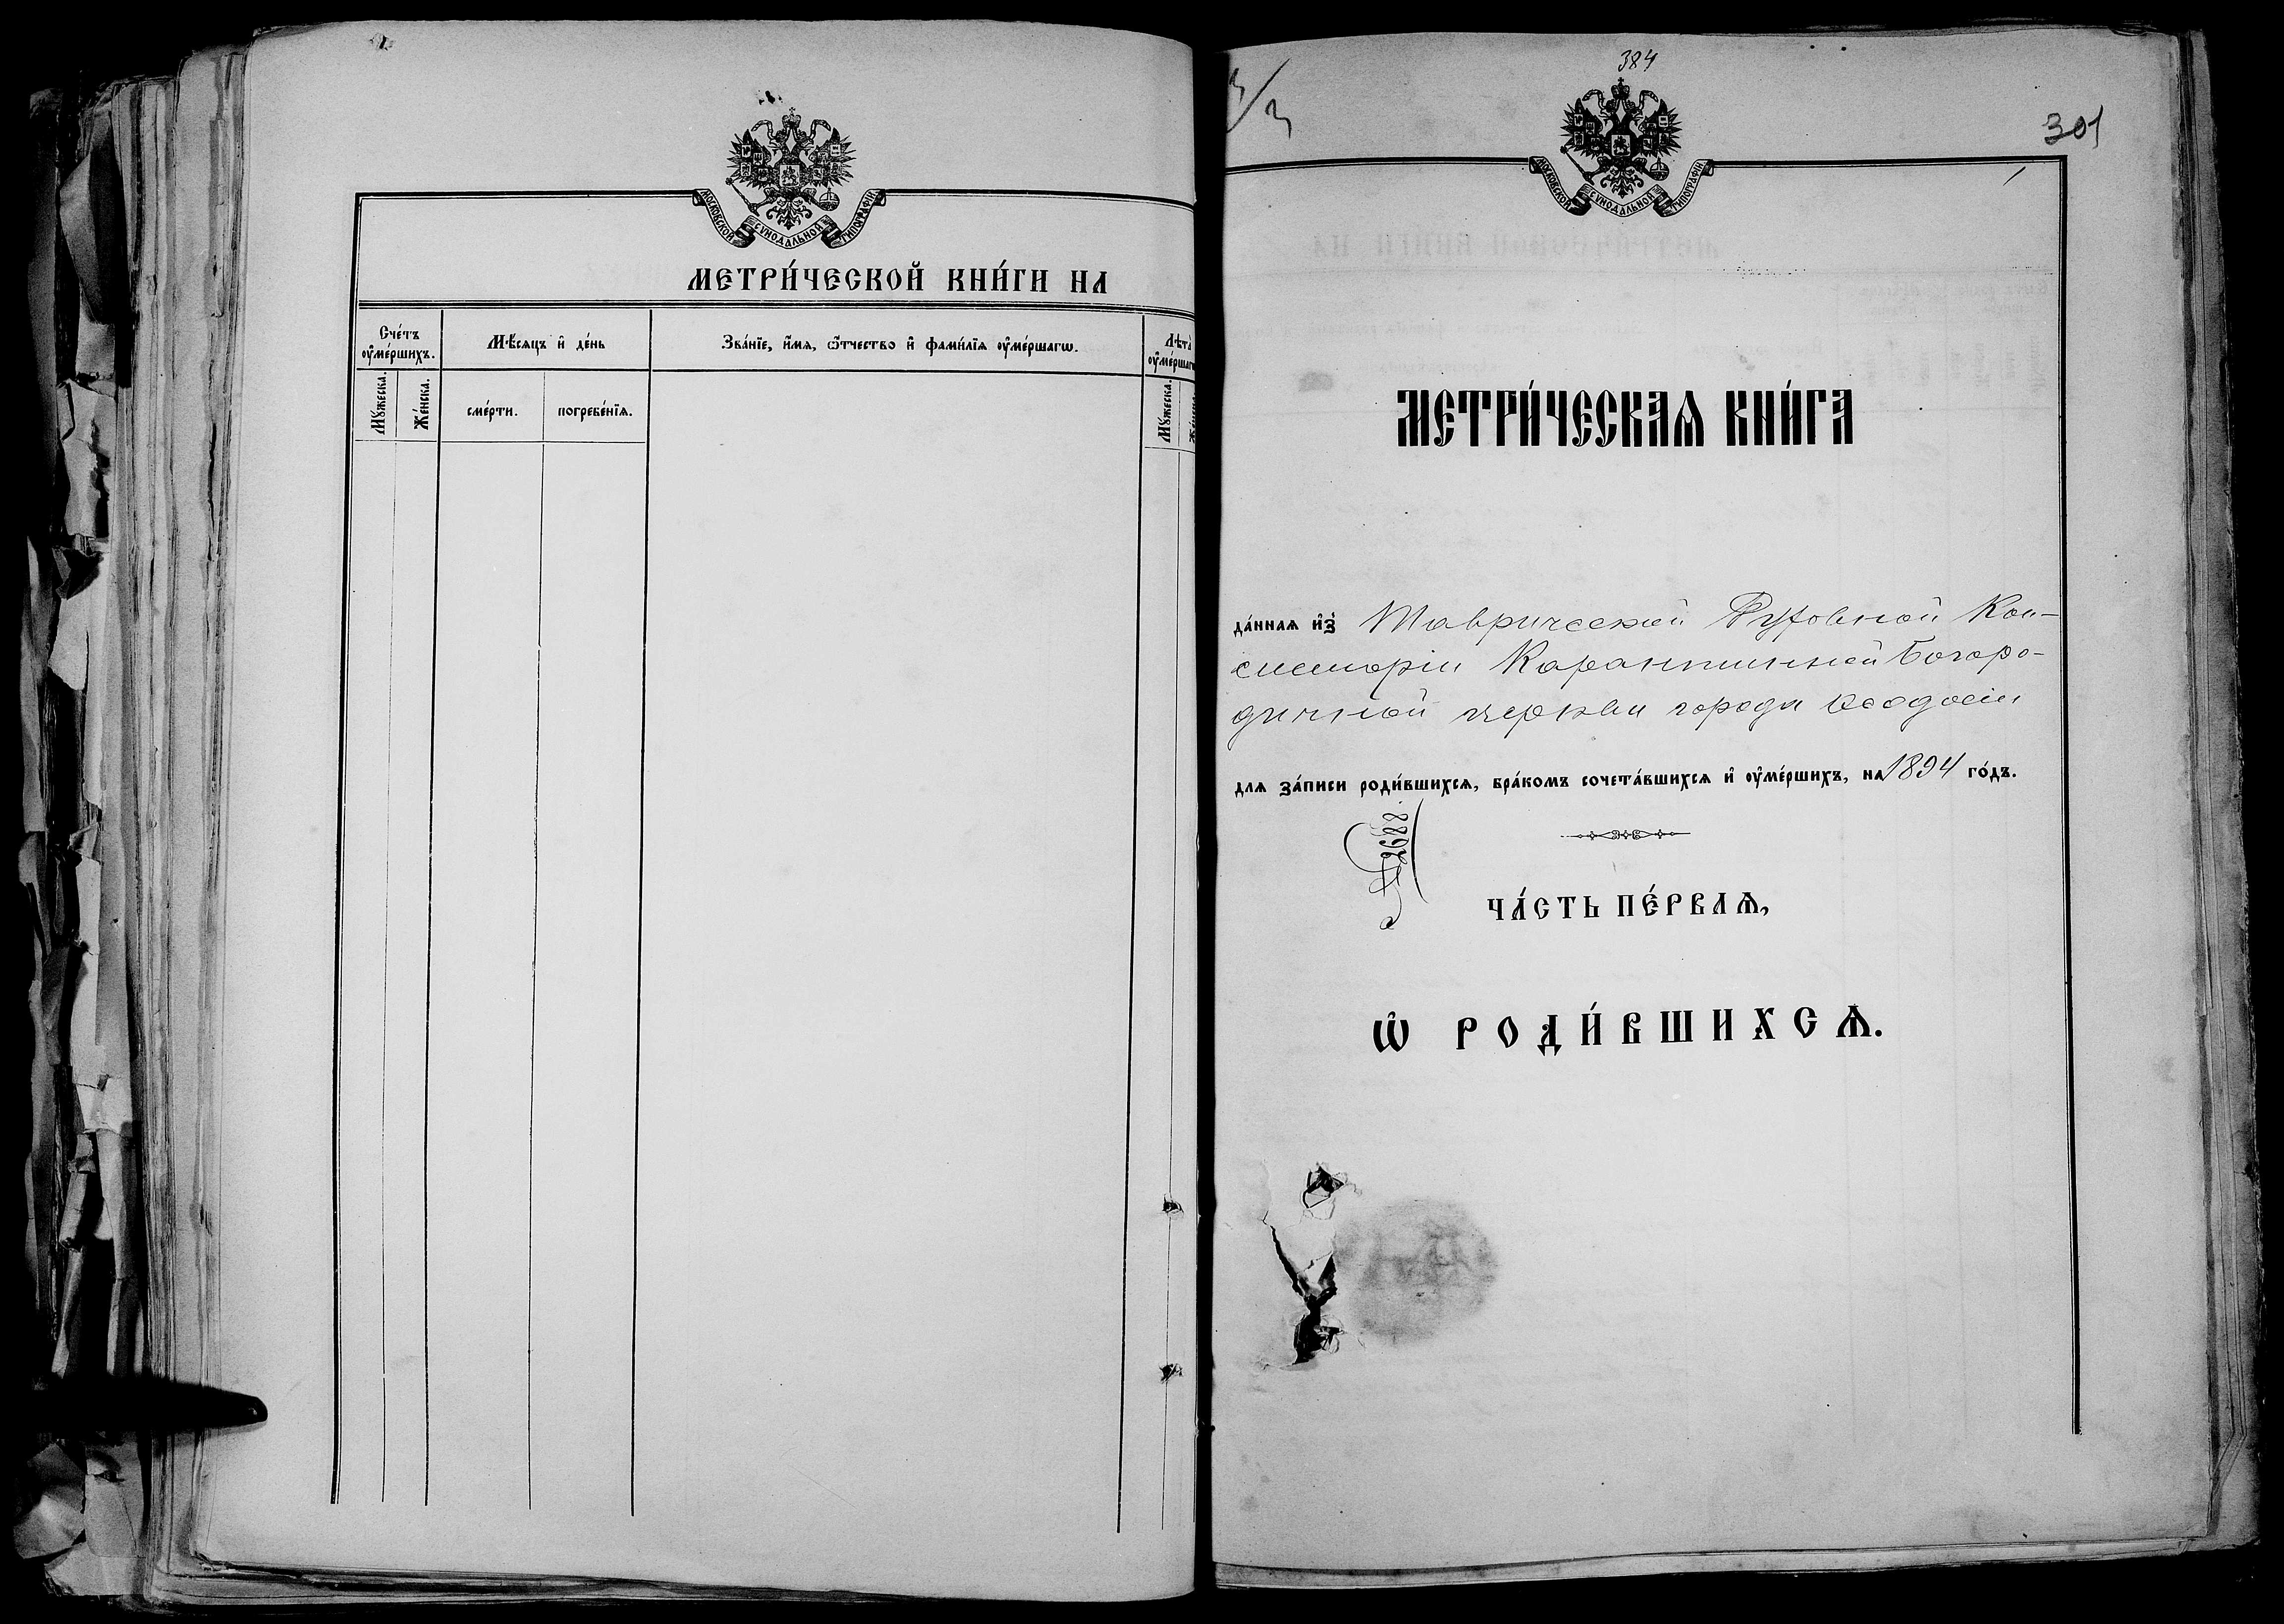 МОСКОВСКОЙ СѴНОДАЛЬНОЙ ТИПОГРАФІИ
МЕТРИ́ЧЕСКОЙ КНИ́ГИ НА
Сче́тъ ᲂу҆ме́ршихъ.
Мѣ́сяцъ и҆ де́нь
Зва́нїе, и҆́мя, ѻ҆́тчество и҆ фами́лїя ᲂу҆ме́ршагѡ.
Лѣта̀
Мꙋ́жеска.
Же́нска.
сме́рти.
погребе́нїѧ.
Мꙋ́жеска.
384
301
МОСКОВСКОЙ СѴНОДАЛЬНОЙ ТИПОГРАФІИ
МЕТРИ́ЧЕСКАѦ КНИ́ГА
да́ннаѧ и҆з̾ Таврической Духовной Кон-
систоріи Карантинной Богоро-
дичной церкви города Ѳеодосіи
длѧ за́писи роди́вшихсѧ, бра́комъ сочета́вшихсѧ и҆ ᲂу҆ме́ршихъ, на 1894 го́дъ.
ЧА́СТЬ ПЕ́РВАѦ,
Ѡ҆ РОДИ́ВШИХСѦ.